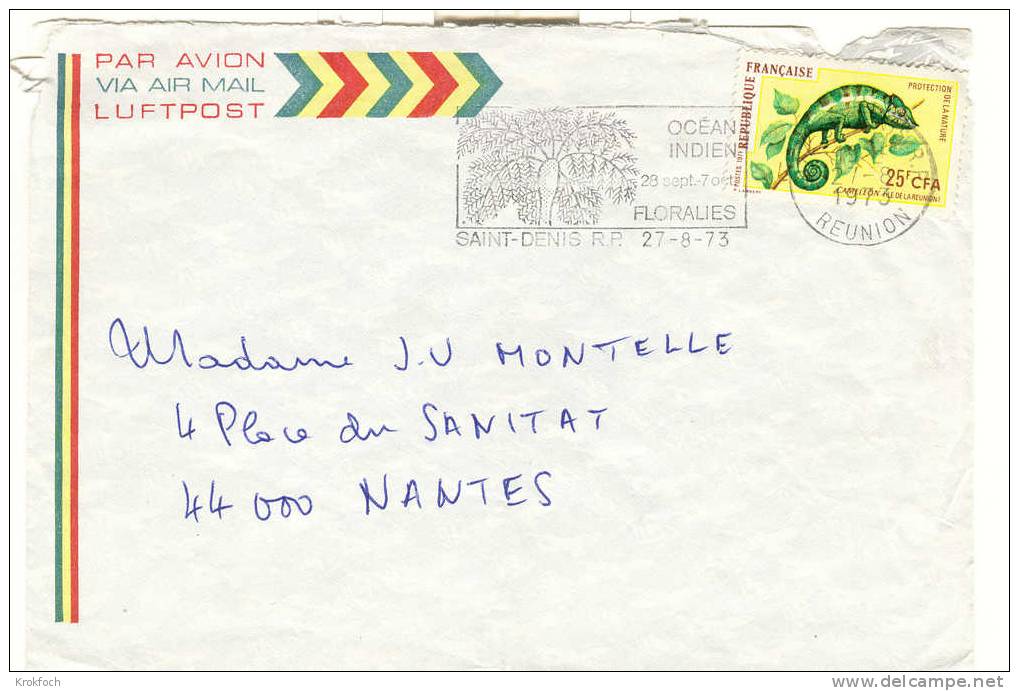 PAR AVION
VIA AIR MAIL
LUFTPOST
OCÉAN
INDIEN
28 sept.-7 oct
FLORALIES
SAINT-DENIS R.P. 27-8-73
RÉPUBLIQUE FRANÇAISE
PROTECTION DE LA NATURE
POSTES 1971
25F CFA
CAMÉLÉON ILE DE LA RÉUNION
1973
REUNION
Madame J.V MONTELLE
4 Place du SANITAT
44 000 NANTES
Krokfoch
www.delcampe.net